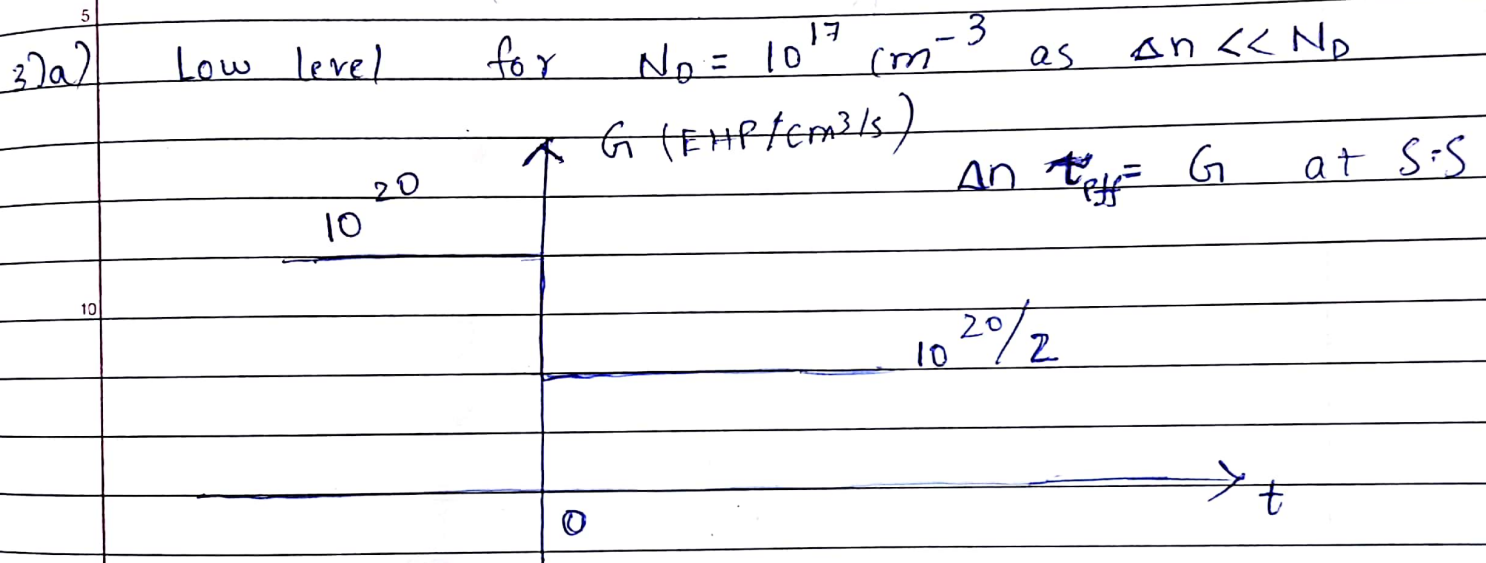 5
3)a) Low level for N_D = 10^17 cm^-3 as Δn << N_D
G (EHP/cm^3/s)
Δn τ_eff = G at S.S
10^20
10
10^20/2
t
0